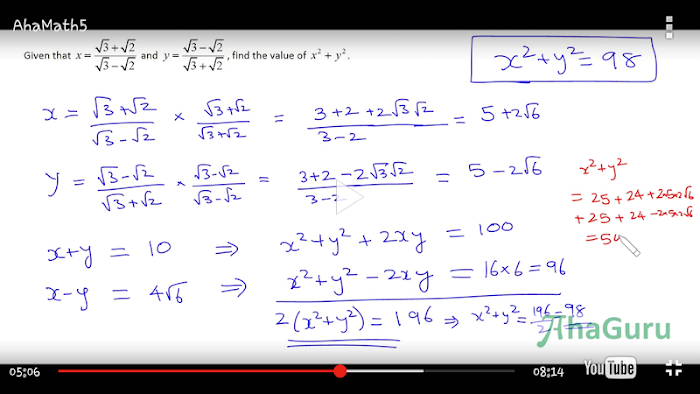 AhaMath5
Given that x = (√3+√2)/(√3−√2) and y = (√3−√2)/(√3+√2), find the value of x² + y².
x² + y² = 98
x = (√3+√2)/(√3−√2) × (√3+√2)/(√3+√2) = (3+2+2√3√2)/(3−2) = 5+2√6
y = (√3−√2)/(√3+√2) × (√3−√2)/(√3−√2) = (3+2−2√3√2)/(3−2) = 5−2√6
x²+y²
= 25+24+2×5×2√6
+25+24−2×5×2√6
= 50
x+y = 10 ⇒ x²+y²+2xy = 100
x−y = 4√6 ⇒ x²+y²−2xy = 16×6 = 96
2(x²+y²) = 196 ⇒ x²+y² = 196/2 = 98
AhaGuru
05:06
08:14
YouTube